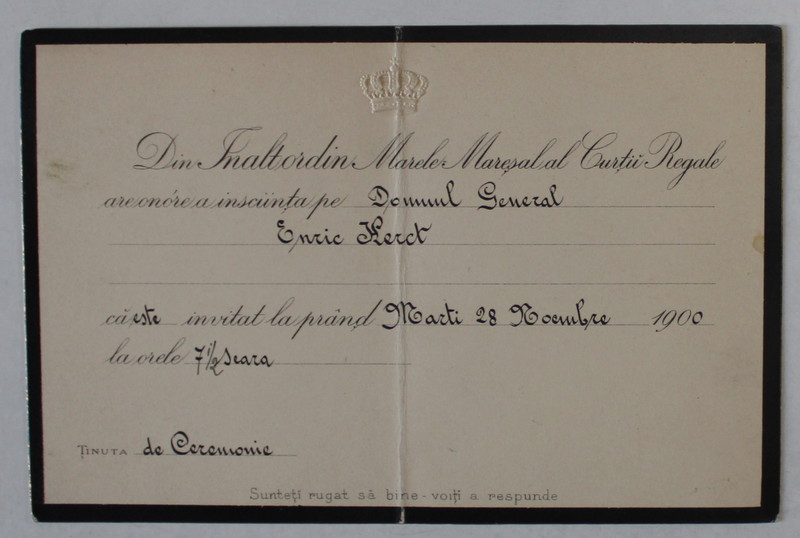 Din Inalt ordin Marele Mareşal al Curţii Regale
are onóre a insciinţa pe Domnul General
Enric Herct
că este invitat la prânḑ Marti 28 Noembre 1900
la orele 7 1/2 seara
ŢINUTA de Ceremonie
Sunteţi rugat să bine-voiţi a respunde